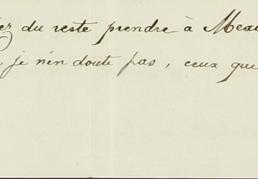 ez du reste prendre à Meau
, je n'en doute pas, ceux que